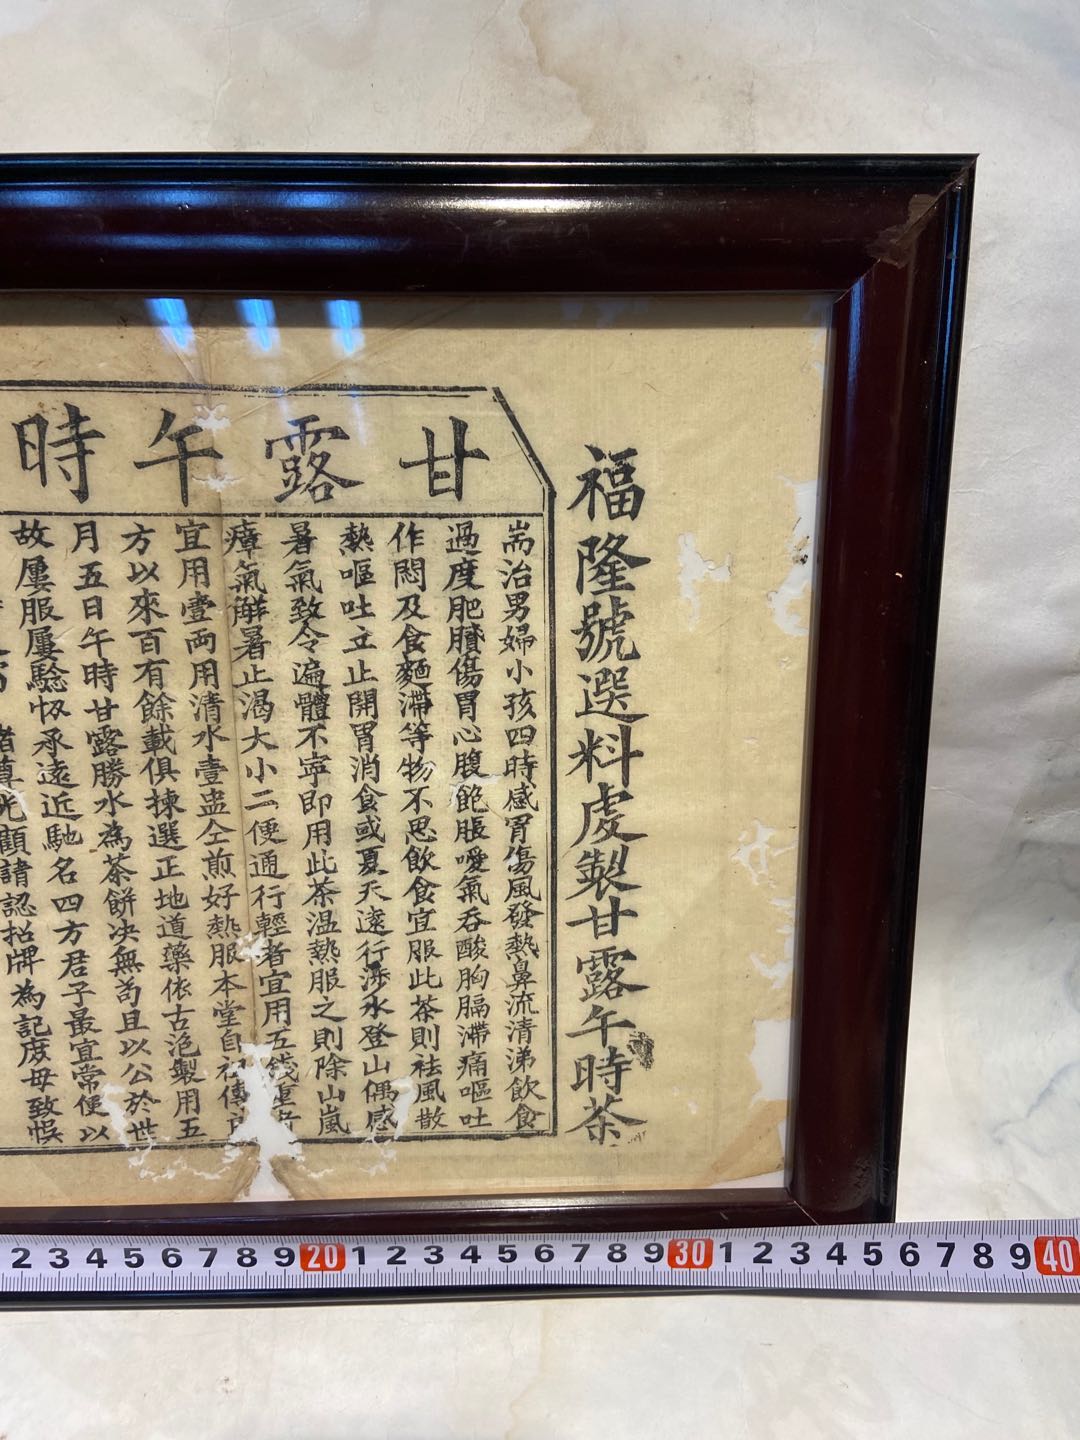 福隆號選料虔製甘露午時茶
甘露午時
耑治男婦小孩四時感冒傷風發熱鼻流清涕飲食
過度肥膩傷胃心腹飽脹噯氣吞酸胸膈滯痛嘔吐
作悶及食麵滯等物不思飲食宜服此茶則祛風散
熱嘔吐立止開胃消食或夏天遠行涉水登山偶感
暑氣致令遍體不寧即用此茶温熱服之則除山嵐
瘴氣解暑止渴大小二便通行輕者宜用五錢重者
宜用壹両用清水壹盅仝煎好熱服本堂自祖傳
方以來百有餘載俱揀選正地道藥依古炮製用五
月五日午時甘露勝水為茶餅决無苟且以公於世
故屢服屢驗怺承遠近馳名四方君子最宜常便以
諸尊光顧請認招牌為記庶毋致悞
2 3 4 5 6 7 8 9 20 1 2 3 4 5 6 7 8 9 30 1 2 3 4 5 6 7 8 9 40